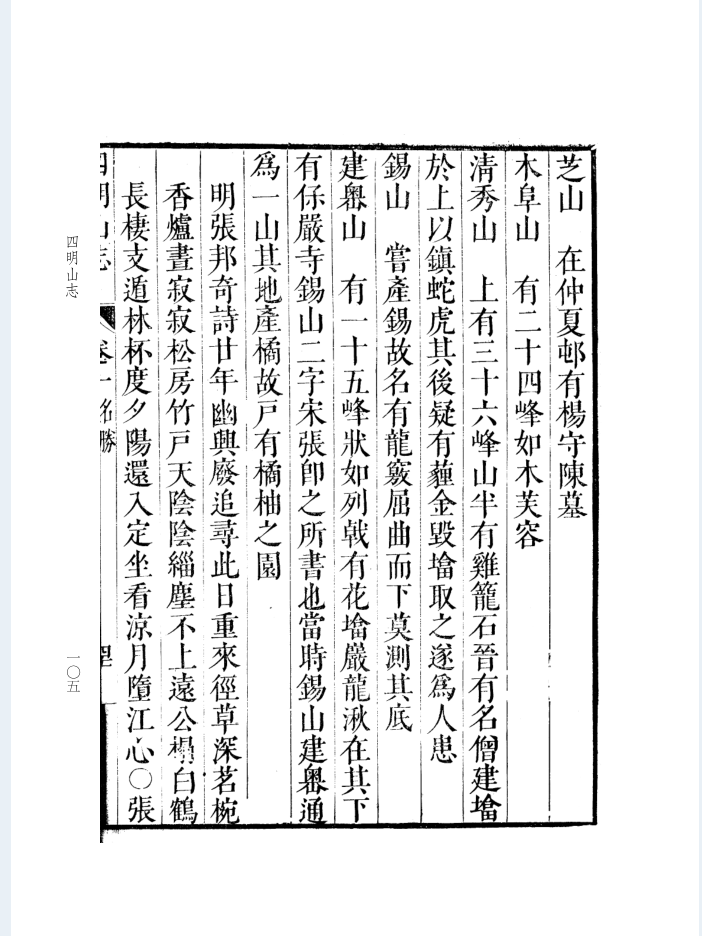 芝山　在仲夏邨有楊守陳墓
木阜山　有二十四峰如木芙容
清秀山　上有三十六峰山半有雞籠石晉有名僧建墖
於上以鎮蛇虎其後疑有薶金毀墖取之遂爲人患
錫山　嘗產錫故名有龍竅屈曲而下莫測其底
建㠗山　有一十五峰狀如列戟有花墖巖龍湫在其下
有保嚴寺錫山二字宋張卽之所書也當時錫山建㠗通
爲一山其地產橘故戸有橘柚之園
明張邦奇詩廿年幽興廢追尋此日重來徑草深茗椀
香爐晝寂寂松房竹戸天陰陰緇塵不上遠公榻白鶴
長棲支遁林杯度夕陽還入定坐看涼月墮江心〇張
四明山志　卷一名勝
四明山志
一〇五